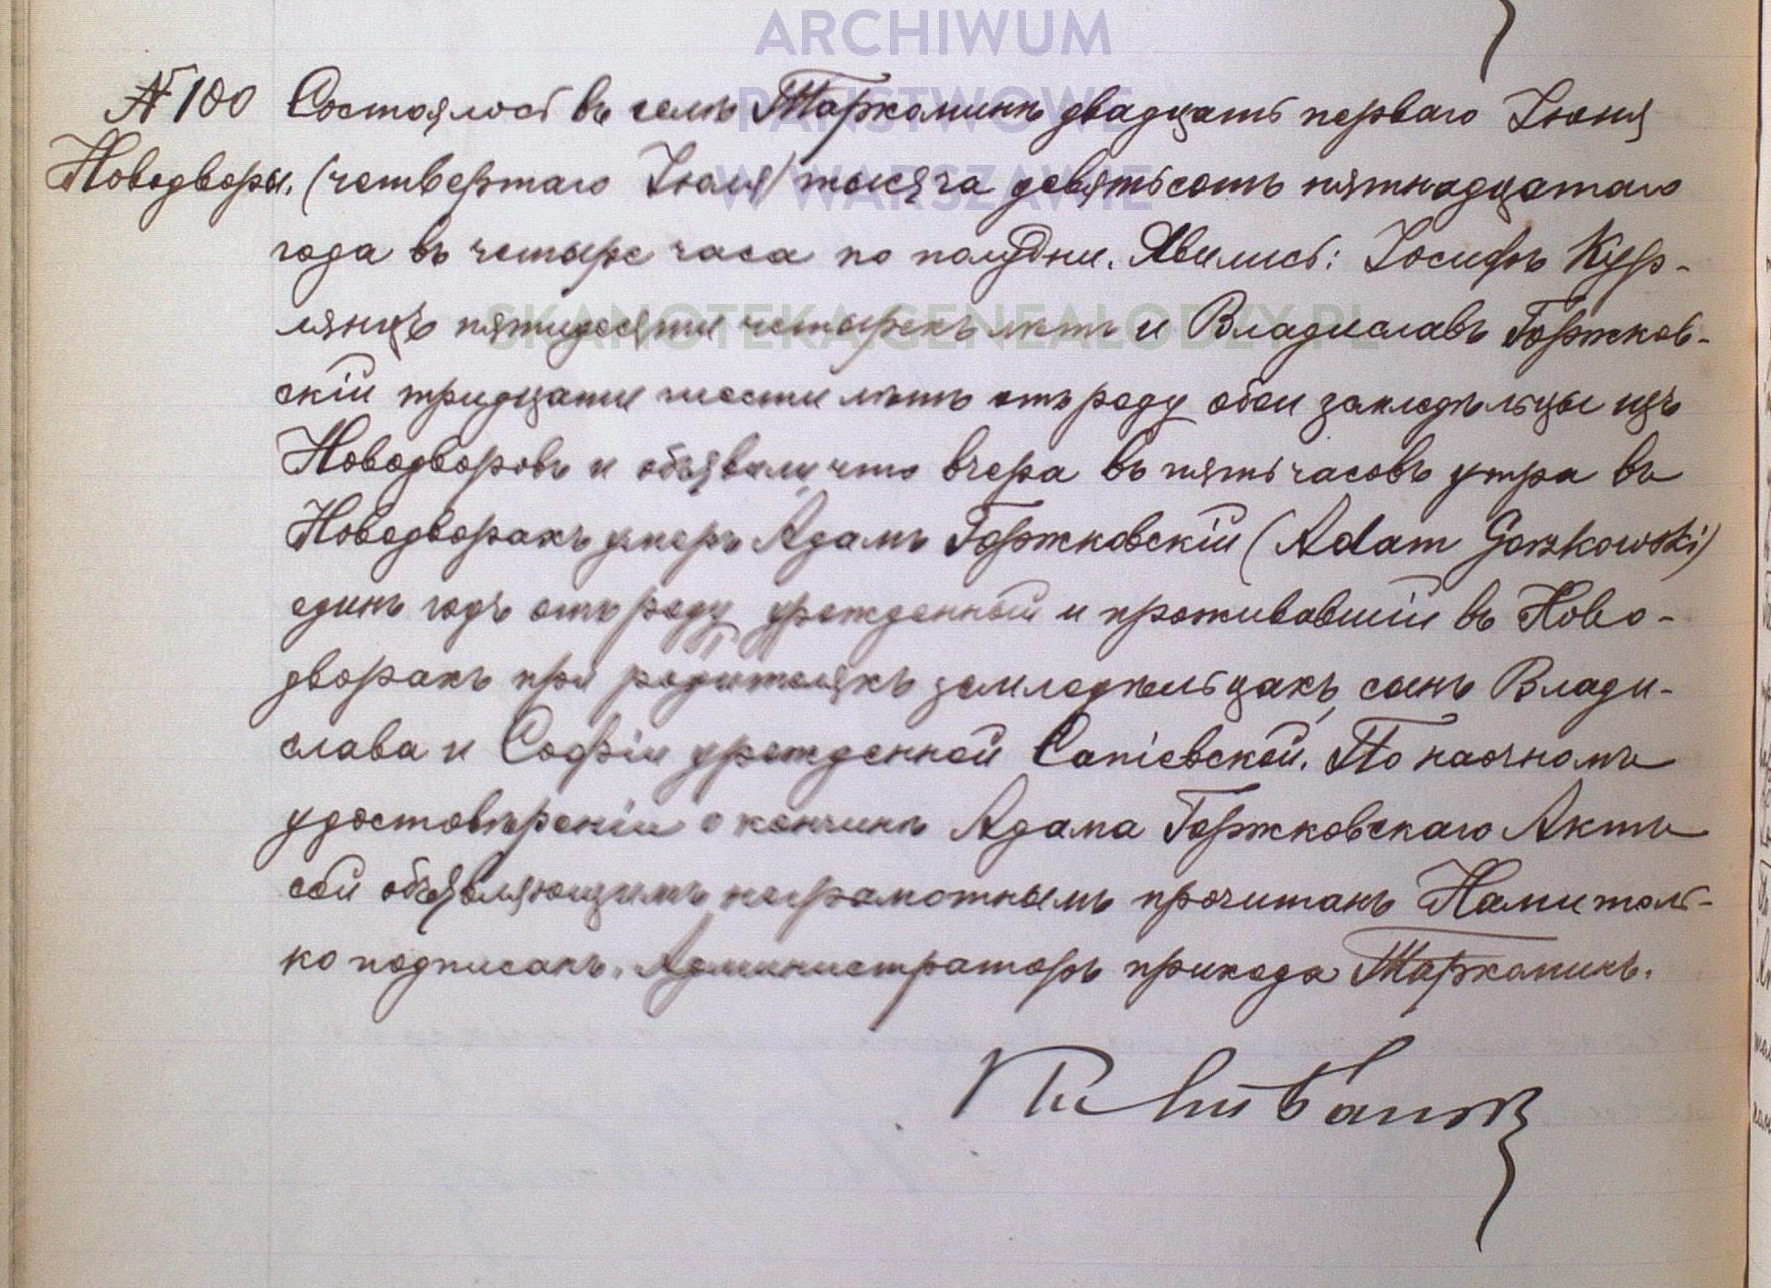 ARCHIWUM
PAŃSTWOWE
W WARSZAWIE
SKANOTEKA.GENEALODZY.PL
№ 100 Состоялось въ селѣ Тархоминѣ двадцать перваго Іюня
Новодворы. (четвертаго Іюля) тысяча девятьсотъ пятнадцатаго
года въ четыре часа по полудни. Явились: Іосифъ Кур-
лянцъ пятидесяти четырехъ лѣтъ и Владиславъ Горжков-
скій тридцати шести лѣтъ отъ роду обои земледѣльцы изъ
Новодворовъ и объявили что вчера въ пять часовъ утра въ
Новодворахъ умеръ Адамъ Горжковскій (Adam Gorzkowski)
одинъ годъ отъ роду урожденный и проживавшій въ Ново-
дворахъ при родителяхъ земледѣльцахъ, сынъ Влади-
слава и Софіи урожденной Сапіевской. По наочномъ
удостовѣреніи о кончинѣ Адама Горжковскаго Актъ
сей объявляющимъ неграмотнымъ прочитанъ Нами толь-
ко подписанъ. Администраторъ прихода Тархоминъ.